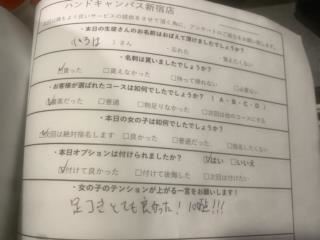 ハンドキャンパス新宿店
・本日の生徒さんのお名前はおぼえて頂けましたでしょうか？
いろは）さん ・忘れた ・覚えたくない
・名刺は貰いましたでしょうか？
☑貰った □持って帰れない □必要ない
・お客様が選ばれたコースは如何でしたでしょうか？（A・B・C・D）
☑最高だった □普通 □物足りなかった □次回は他のコースにする
・本日の女の子は如何でしたでしょうか？
☑次回は絶対指名します □良かった □普通だった □指名したくない
・本日オプションは付けられましたか？ ☑はい □いいえ
☑付けて良かった □付けて後悔した □次回は付けたい
・女の子のテンションが上がる一言をお願いします！
足コキとても良かった！